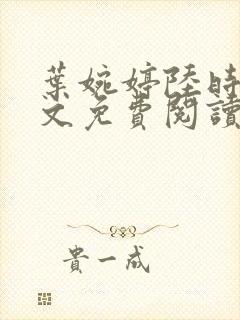 葉婉婷陸時
文免費閱讀
貴一成